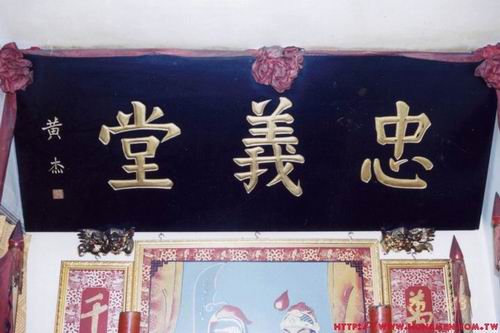 忠義堂
黄杰
萬
千
HTTP://WWW.HUNGMEN.COM.TW